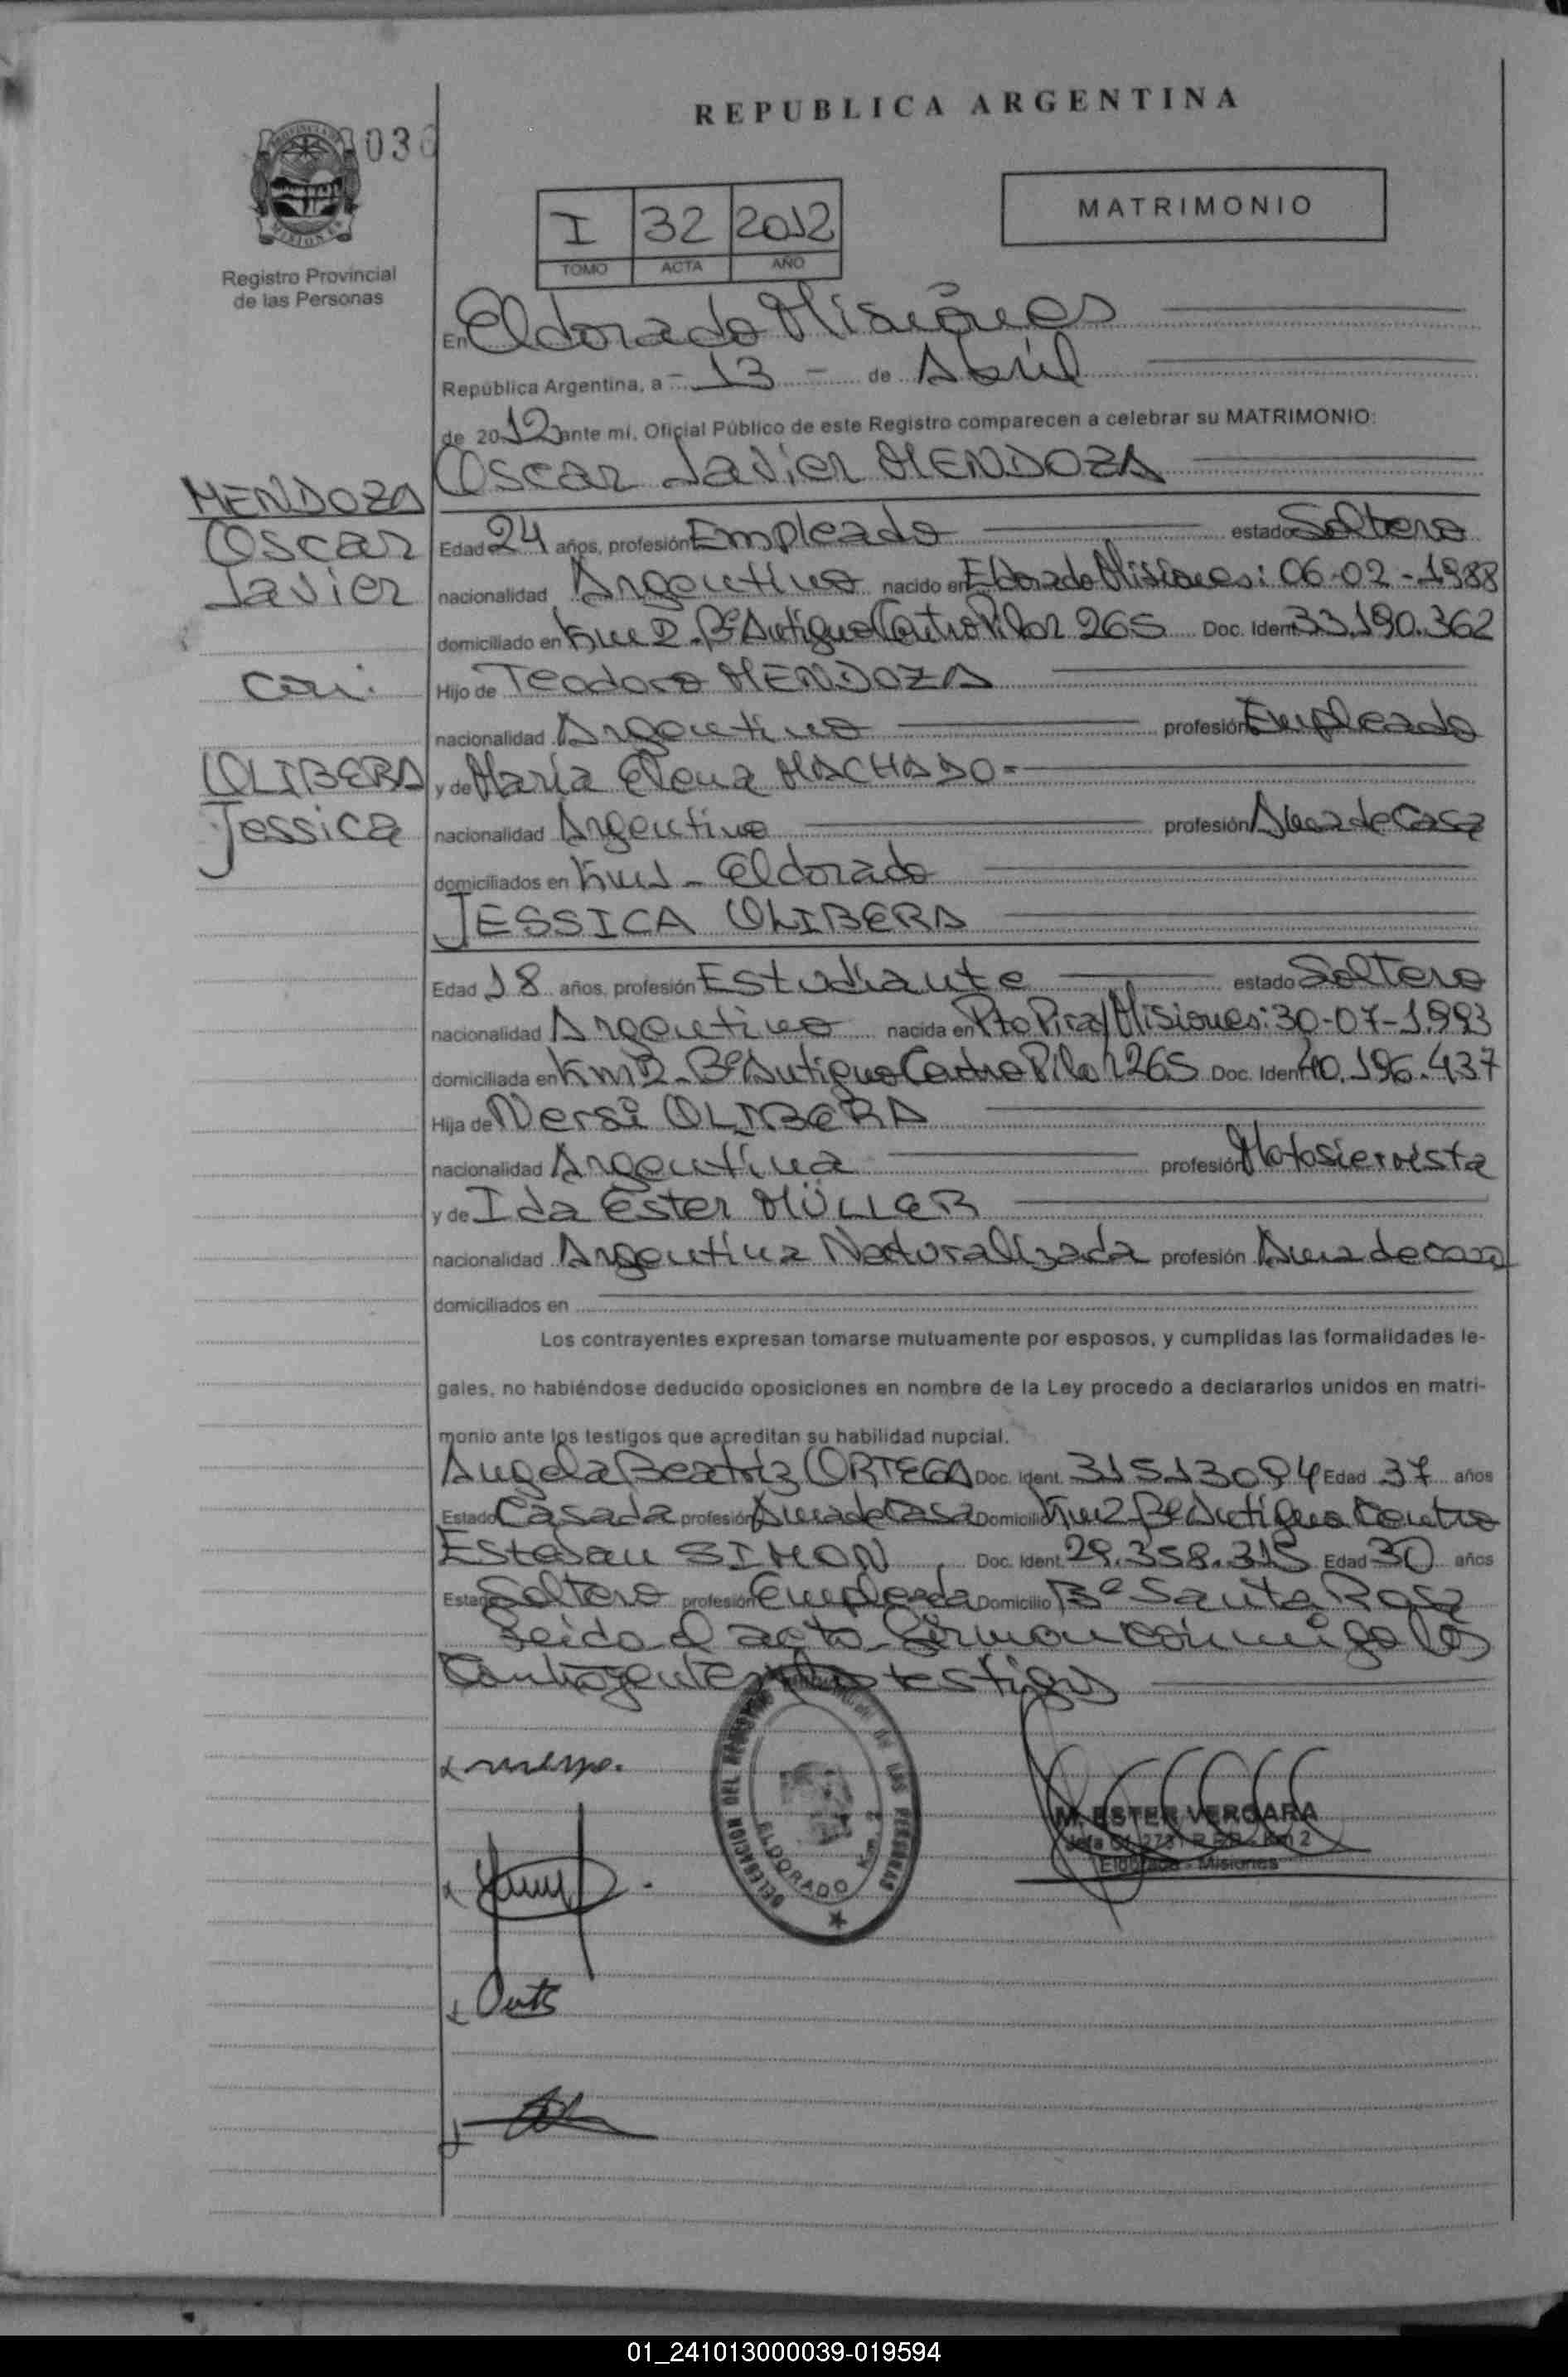 REPUBLICA ARGENTINA
036
MATRIMONIO
I 32 2012
TOMO ACTA AÑO
Registro Provincial
de las Personas
En Eldorado Misiones
República Argentina, a - 13 - de Abril
de 2012 ante mí, Oficial Público de este Registro comparecen a celebrar su MATRIMONIO:
Oscar Javier MENDOZA
MENDOZA
Oscar
Javier
con:
OLIBERA
Jessica
Edad 24 años, profesión Empleado estado Soltero
nacionalidad Argentino nacido en Eldorado Misiones: 06-02-1988
domiciliado en Km 2 - Bº Antiguo Centro Pilar 265 Doc. Ident 33.190.362
Hijo de Teodoro MENDOZA
nacionalidad Argentino profesión Empleado
y de María Elena MACHADO -
nacionalidad Argentino profesión Ama de Casa
domiciliados en Km - Eldorado
JESSICA OLIBERA
Edad 18 años, profesión Estudiante estado Soltero
nacionalidad Argentino nacida en Pto Piray Misiones: 30-07-1.993
domiciliada en Km 2 - Bº Antiguo Centro Pilar 265 Doc. Ident 40.196.437
Hija de Nersi OLIBERA
nacionalidad Argentina profesión Motosierrista
y de Ida Ester MÜLLER
nacionalidad Argentina Naturalizada profesión Ama de casa
domiciliados en
Los contrayentes expresan tomarse mutuamente por esposos, y cumplidas las formalidades le-
gales, no habiéndose deducido oposiciones en nombre de la Ley procedo a declararlos unidos en matri-
monio ante los testigos que acreditan su habilidad nupcial.
Angela Beatriz ORTEGA Doc. Ident. 31513094 Edad 37 años
Estado Casada profesión Ama de Casa Domicilio Km 2 Bº Antiguo Centro
Esteban SIMON Doc. Ident. 29.358.315 Edad 30 años
Estado Soltero profesión Empleada Domicilio Bº Santa Rosa
Leido el acto firman conmigo los
Contrayentes y los testigos
DELEGACION DEL REGISTRO PROVINCIAL DE LAS PERSONAS
ELDORADO Km. 2
M. ESTER VERGARA
Jefa Of. 2731 R.P.P. - Km 2
Eldorado - Misiones
01_241013000039-019594